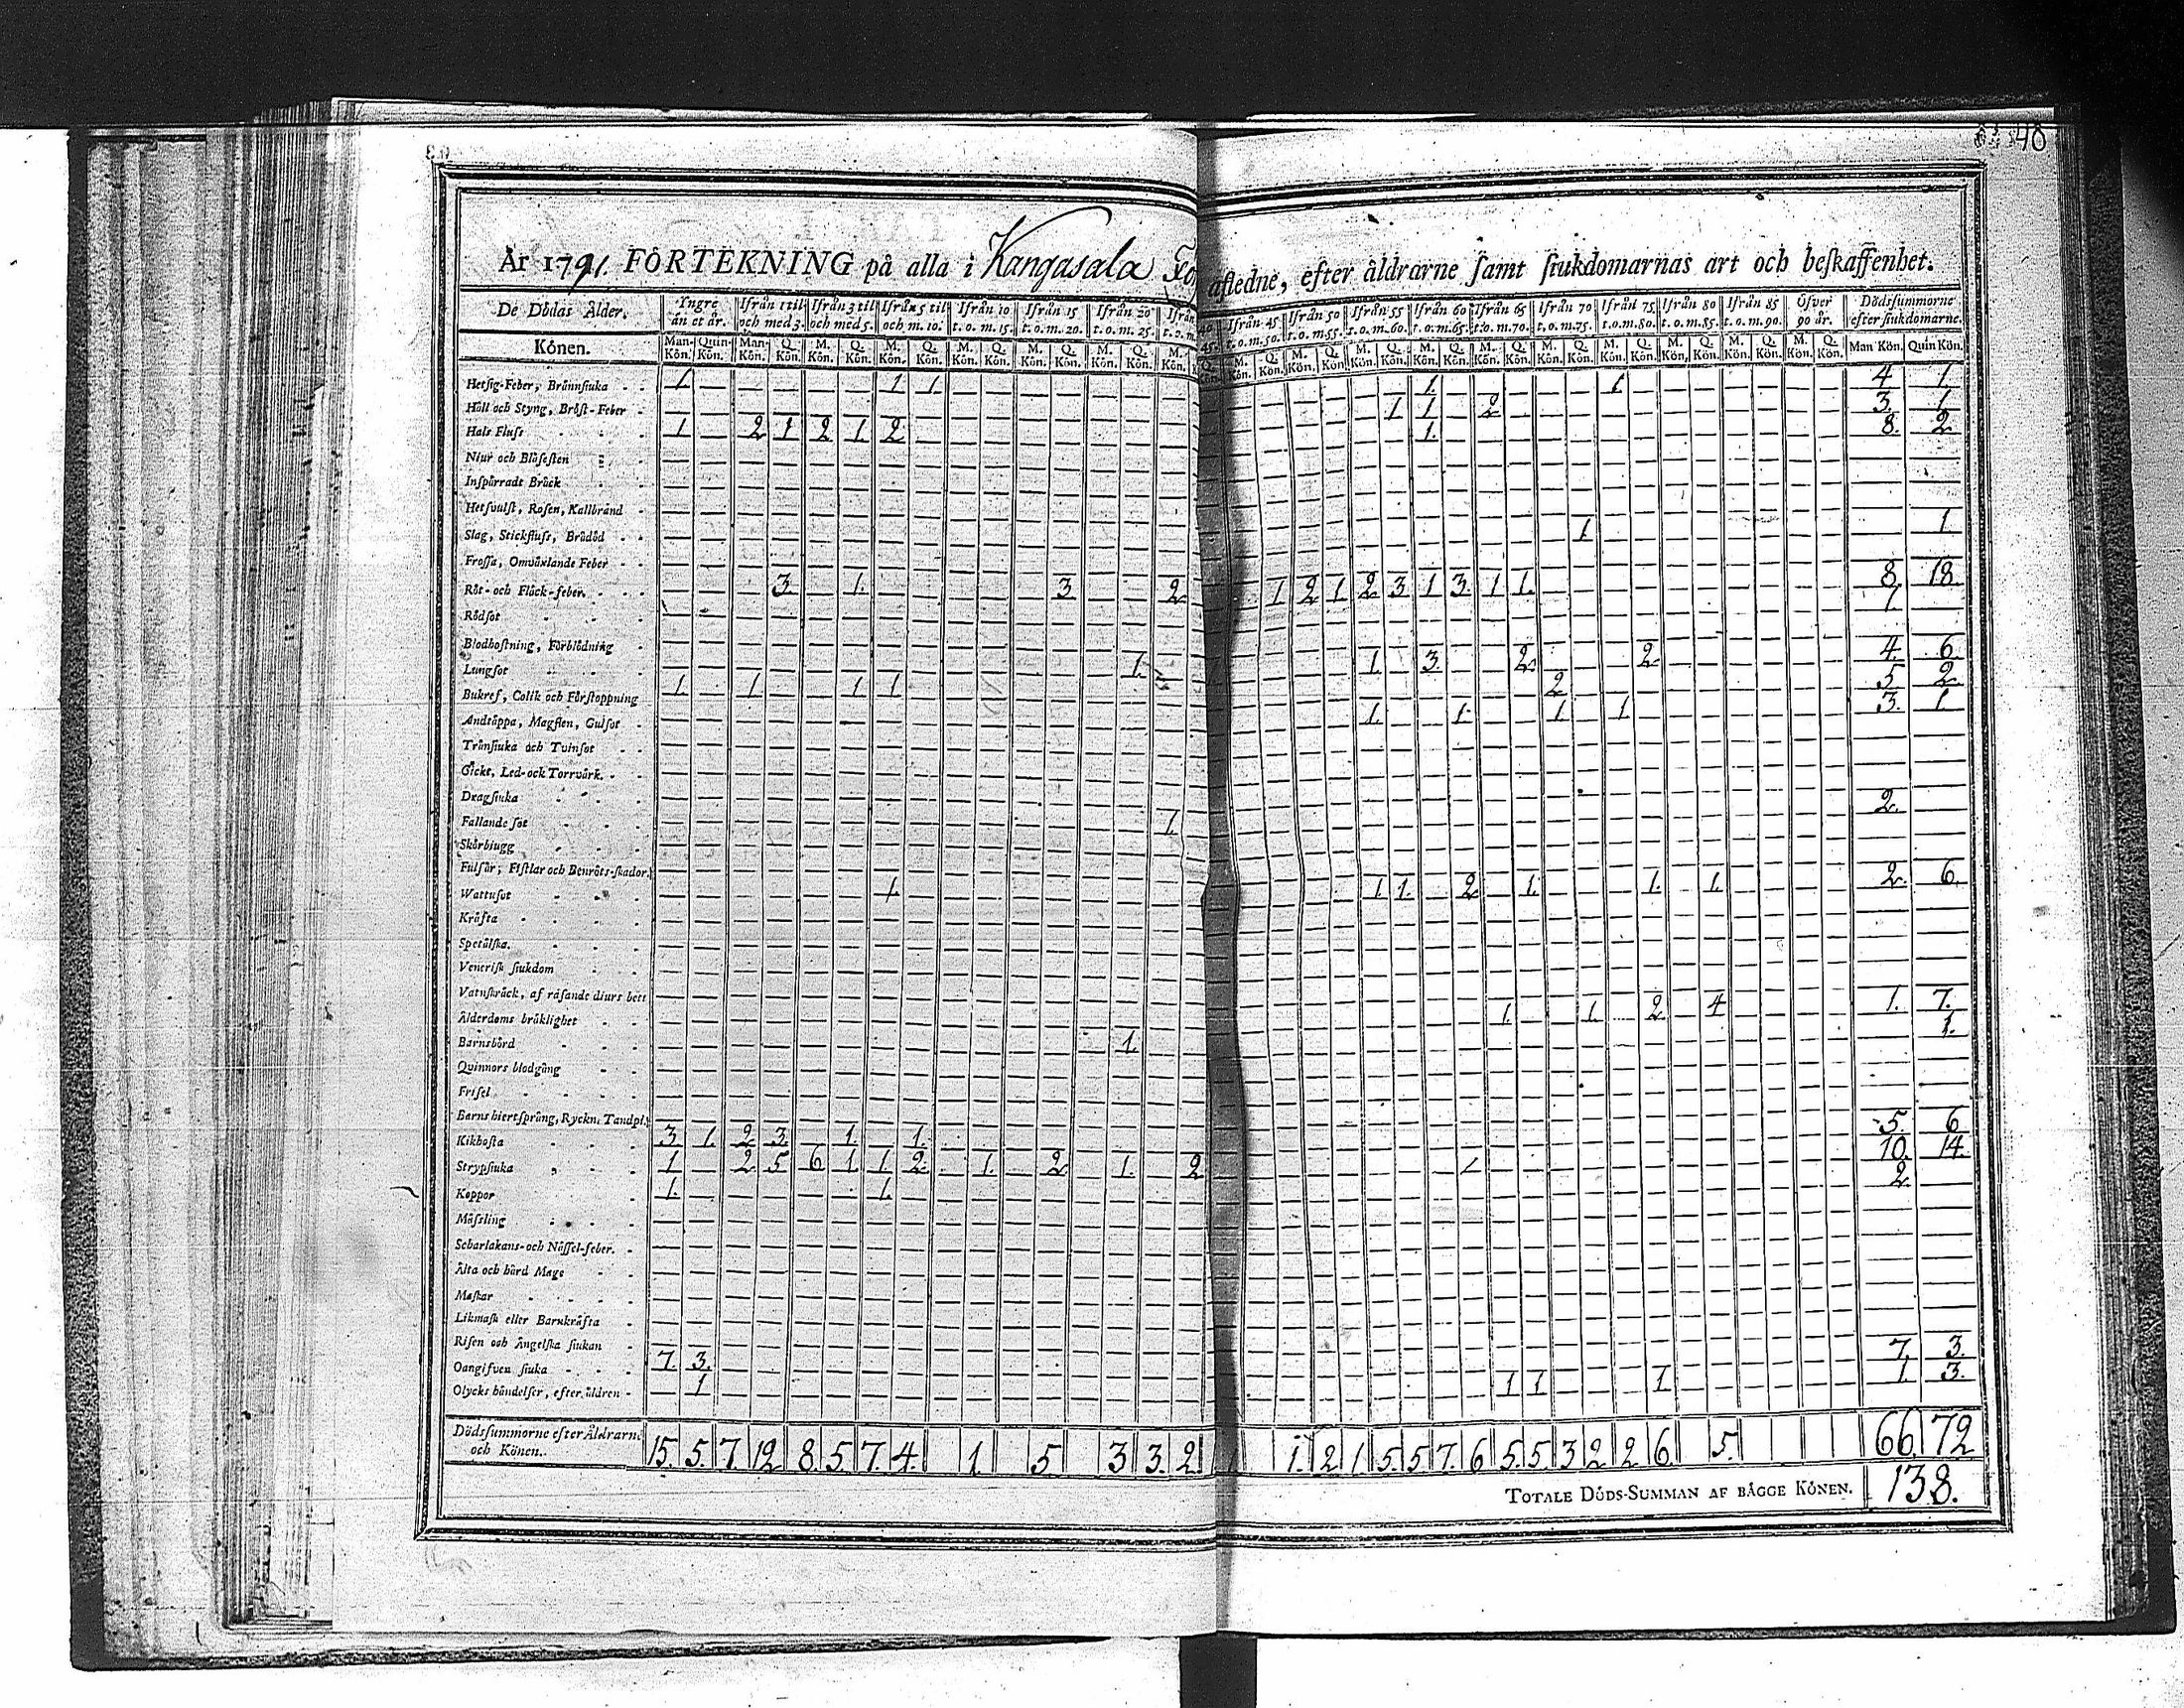 40
År 1791. FÖRTEKNING på alla i Kangasala afledne, efter åldrarne ſamt ſiukdomarnas art och beſkaffenhet.
De Dödas Ålder. Yngre än et år. Ifrån 1 til och med 3. Ifrån 3 til och med 5. Ifrån 5 til och m. 10. Ifrån 10 t.o.m. 15. Ifrån 15 t.o.m. 20. Ifrån 20 t.o.m. 25. Ifrån 45 t.o.m. 50. Ifrån 50 t.o.m. 55. Ifrån 55 t.o.m. 60. Ifrån 60 t.o.m. 65. Ifrån 65 t.o.m. 70. Ifrån 70 t.o.m. 75. Ifrån 75 t.o.m. 80. Ifrån 80 t.o.m. 85. Ifrån 85 t.o.m. 90. Öfver 90 år. Dödsſummorne efter ſiukdomarne.
Könen. Man-Kön. Quin-Kön. Man-Kön. Q. Kön. M. Kön. Q. Kön. M. Kön. Q. Kön. M. Kön. Q. Kön. M. Kön. Q. Kön. M. Kön. Q. Kön. M. Kön. Q. Kön. M. Kön. Q. Kön. M. Kön. Q. Kön. M. Kön. Q. Kön. M. Kön. Q. Kön. M. Kön. Q. Kön. M. Kön. Q. Kön. M. Kön. Q. Kön. M. Kön. Q. Kön. M. Kön. Q. Kön. M. Kön. Q. Kön. Man Kön. Quin Kön.
Hetſig-Feber, Brännſiuka 1 1 1 1 1 4 1
Håll och Styng, Bröſt-Feber 1 1 2 3 1
Hals Fluſs 1 2 1 2 1 2 1 8 2
Niur och Blåſeſten
Inſpärradt Bråck
Hetſvulſt, Roſen, Kallbrand
Slag, Stickfluſs, Brådöd 1 1
Froſſa, Omväxlande Feber
Röt- och Fläck-feber 3 1 3 2 1 2 1 2 3 1 3 1 1 8 18
Rödſot 1
Blodhoſtning, Förblödning
Lungſot 1 1 3 2 2 4 6
Bukref, Colik och Förſtoppning 1 1 1 1 2 5 2
Andtäppa, Magſten, Gulſot 1 1 1 1 3 1
Trånſiuka och Tvinſot
Gickt, Led- ock Torrvärk.
Dragſiuka
Fallande ſot 1 2
Skörbiugg
Fulſår, Fiſtlar och Benröts-ſkador.
Wattuſot 1 1 1 2 1 1 1 2 6
Kräfta
Spetälſka.
Veneriſk ſiukdom
Vatnſkräck, af raſande diurs bett
Ålderdoms bräklighet 1 1 2 4 1 7
Barnsbörd 1 1
Quinnors blodgång
Friſel
Barns hiertſprång, Ryckn. Tandpl.
Kikhoſta 3 1 2 3 1 1 5 6
Strypſiuka 1 2 5 6 1 1 2 1 2 1 2 1 10 14
Koppor 1 1 2
Mäſsling
Scharlakans- och Näſſel-feber.
Älta och hård Mage
Maſkar
Likmaſk eller Barnkräfta
Riſen och Ängelſka ſiukan
Oangifven ſiuka 7 3 7 3
Olycks händelſer, efter åldren 1 1 1 1 1 3
Dödsſummorne efter Åldrarne och Könen. 15 5 7 12 8 5 7 4 1 5 3 3 2 1 2 1 5 5 7 6 5 5 3 2 2 6 5 66 72
TOTALE DÖDS-SUMMAN AF BÄGGE KÖNEN. 138.